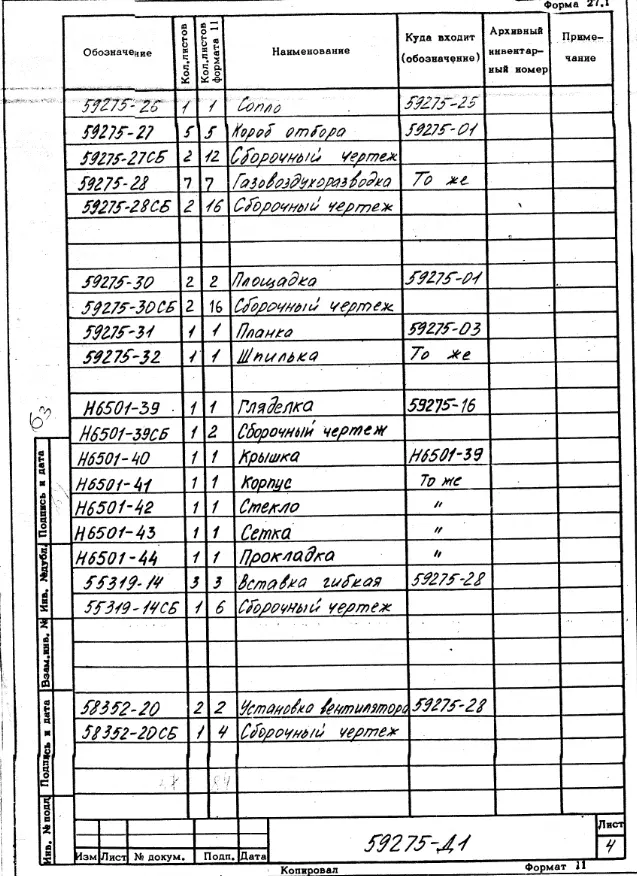 Форма 27.1
Обозначение Кол.листов Кол.листов формата 11 Наименование Куда входит (обозначение) Архивный инвентарный номер Примечание
59275-26 1 1 Сопло 59275-25
59275-27 5 5 Короб отбора 59275-01
59275-27СБ 2 12 Сборочный чертеж
59275-28 7 7 Газовоздухоразводка То же
59275-28СБ 2 16 Сборочный чертеж
59275-30 2 2 Площадка 59275-01
59275-30СБ 2 16 Сборочный чертеж
59275-31 1 1 Планка 59275-03
59275-32 1 1 Шпилька То же
63
Н6501-39 1 1 Гляделка 59275-16
Н6501-39СБ 1 2 Сборочный чертеж
Н6501-40 1 1 Крышка Н6501-39
Н6501-41 1 1 Корпус То же
Н6501-42 1 1 Стекло "
Н6501-43 1 1 Сетка "
Н6501-44 1 1 Прокладка "
55319-14 3 3 Вставка гибкая 59275-28
55319-14СБ 1 6 Сборочный чертеж
58352-20 2 2 Установка вентилятора 59275-28
58352-20СБ 1 4 Сборочный чертеж
Подпись и дата
Инв. №дубл.
Взам.инв. №
Подпись и дата
Инв. №подл.
Изм Лист № докум. Подп. Дата
59275-Д1
Лист
4
Копировал Формат 11